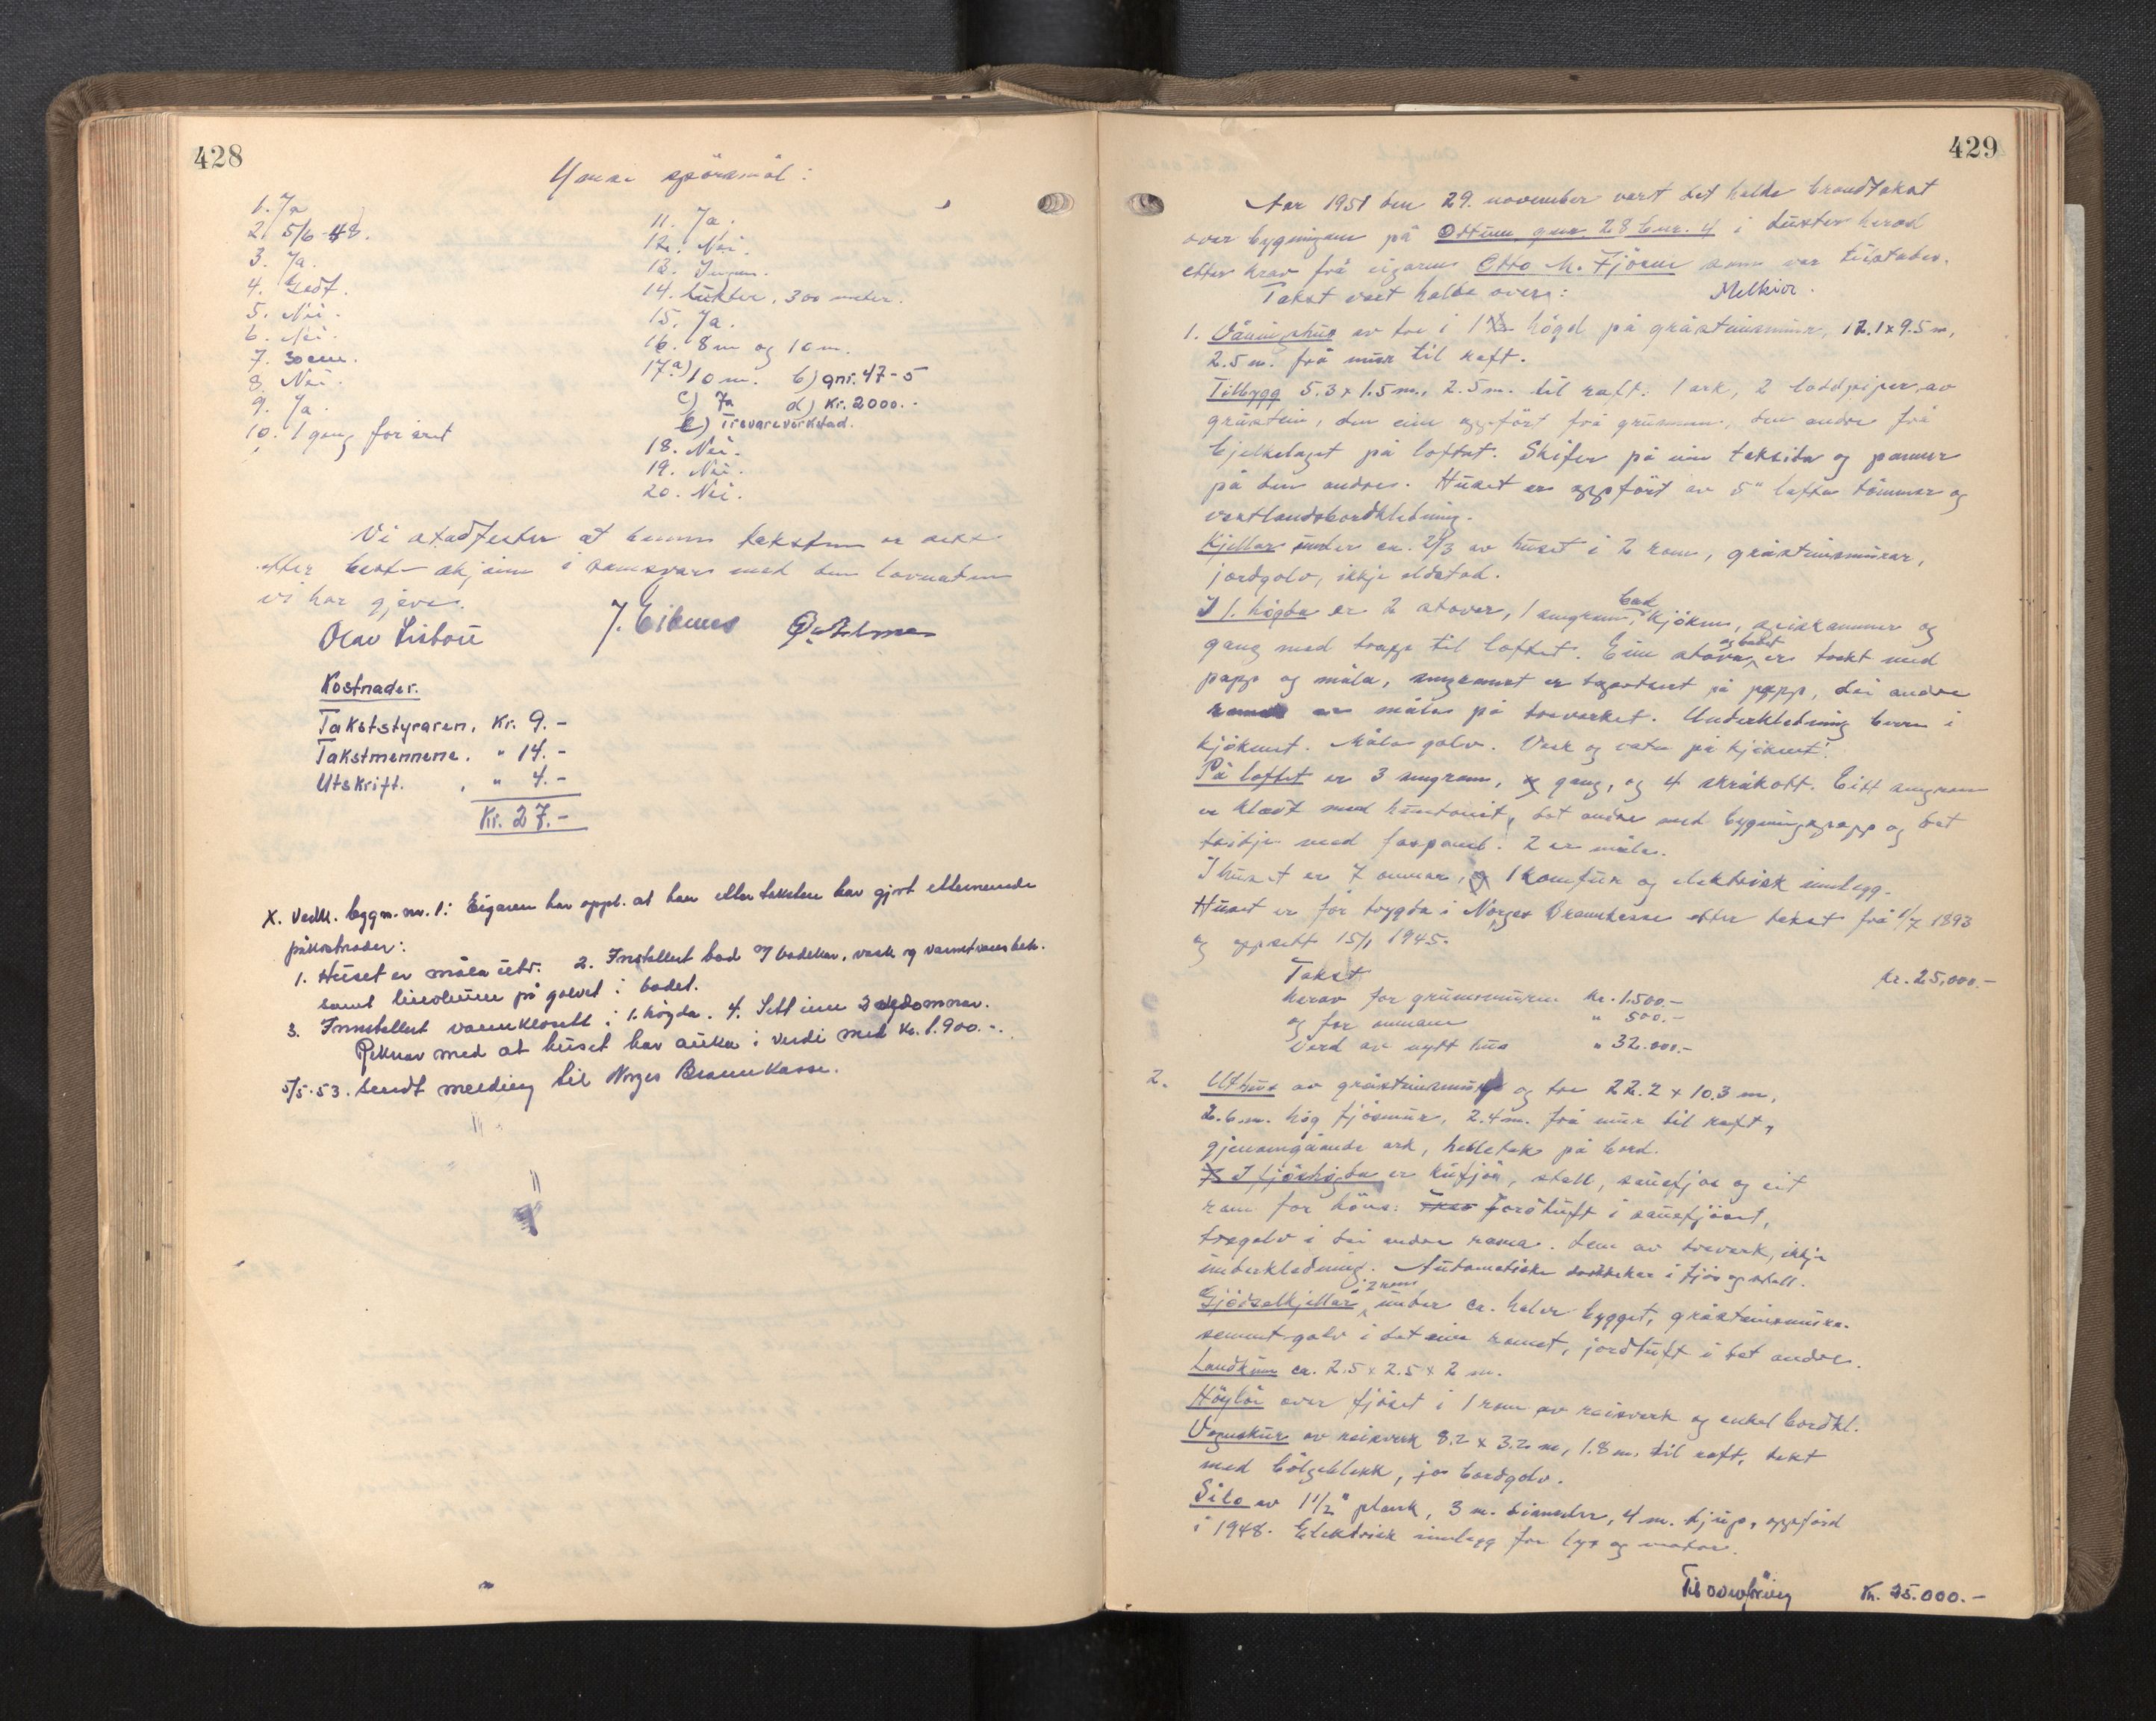 428
Ymse spörsmål:
1. Ja
2. 5/6-48.
3. Ja.
4. Godt.
5. Nei.
6. Nei.
7. 30 cm.
8. Nei.
9. Ja.
10. 1 gang for året
11. Ja.
12. Nei.
13. Ingen.
14. Lukter, 300 meter.
15. Ja.
16. 8 m og 10 m.
17. a) 10 m. b) gnr. 47-5
c) Ja d) Kr. 2000.-
e) Trevareverkstad.
18. Nei.
19. Nei.
20. Nei.
Vi stadfester at denne taksten er sett
etter beste skjönn i samsvar med den lovnaden
vi har gjeve.
Olav Lisboü
Kostnader.
Takststyraren, Kr. 9.-
Takstmennene. " 14.-
Utskrift. , " 4.-
Kr. 27.-
X. Vedk. bygn. nr. 1: Eigaren har oppl. at han etter taksten har gjort etternemnde
påkostnader:
1. Huset er måla utv. 2. Installert bad m/ badekar, vask og varmtvassber.
samt linoleum på golvet i badet.
3. Innstallert vannklosett i 1. högda. 4. Sett inn 2 omnar.
Reknar med at huset har auka i verdi med Kr. 1.900.-.
5/5-53. Sendt melding til Norges Brannkasse.
429
Aar 1951 den 29. november vart det halde brandtakst
over bygningane på Ottum gnr 28 bnr. 4 i Luster herad
etter krav frå eigaren Otto M. Fjösne som var tilstades.
Melkior.
Takst vart halde over:
1. Våningshus av tre i 1 högd på gråsteinsmur, 12.1 x 9.5 m,
2.5 m. frå mur til raft.
Tilbygg 5.3 x 1.5 m., 2.5 m. til raft. 1 ark, 2 loddpiper av
gråstein, den eine oppfört frå grunnen, den andre frå
bjelkelaget på loftet. Skifer på ein takside og panner
på den andre. Huset er oppfört av 5" lafta tömmer og
vestlandsbordkledning.
Kjellar under ca. 2/3 av huset i 2 rom, gråsteinsmurar,
jordgolv, ikkje eldstad.
I 1. högda er 2 stover, 1 sengrom, bad, kjöken, spiskammer og
gang med trapp til loftet. Eine stova og badet er trekt med
papp og måla, sengromet er tapetsert på papp, dei andre
romma er måla på treverket. Underkledning berre i
kjökenet. Måla golv. Vask og vatn på kjökenet.
På loftet er 3 sengrom, gang, og 4 skråkott. Eitt sengrom
er kledt med huntonit, det andre med bygningspapp og det
tridje med faspanel. 2 er måla.
I huset er 7 omnar, 1 komfur og elektrisk innlegg.
Huset er för trygda i Norges Brannkasse etter takst frå 1/7 1893
og oppsett 15/1 1945.
Takst Kr. 25.000.-
herav for grunnmuren Kr. 1.500.-
og for omnane " 500.-
Verd av nytt hus " 32.000.-
2. Uthus av gråsteinsmur og tre 22.2 x 10.3 m,
2.6 m. hög fjösmur, 2.4 m. frå mur til raft,
gjennomgåande ark, helletak på bord.
I fjöshögda er kufjös, stall, sauefjös og eit
rom for höns. Jordtuft i sauefjöset,
tregolv i dei andre roma. Lem av treverk, ikkje
underkledning. Automatiske drikkekar i fjös og stall.
Gjödselkjellar i 2 rom under ca. halve bygget, gråsteinsmurar.
sementgolv i det eine romet, jordtuft i det andre.
Landkum ca. 2.5 x 2.5 x 2 m.
Höylöe over fjöset i 1 rom av reisverk og enkel bordkl.
Vognskur av reisverk 8.2 x 3.2 m, 1.8 m. til raft, tekt
med bölgeblekk, bordgolv.
Silo av 1 1/2" plank, 3 m. diameter, 4 m. djup, oppförd
i 1948. Elektrisk innlegg for lys og motor.
Til overföring Kr. 25.000.-